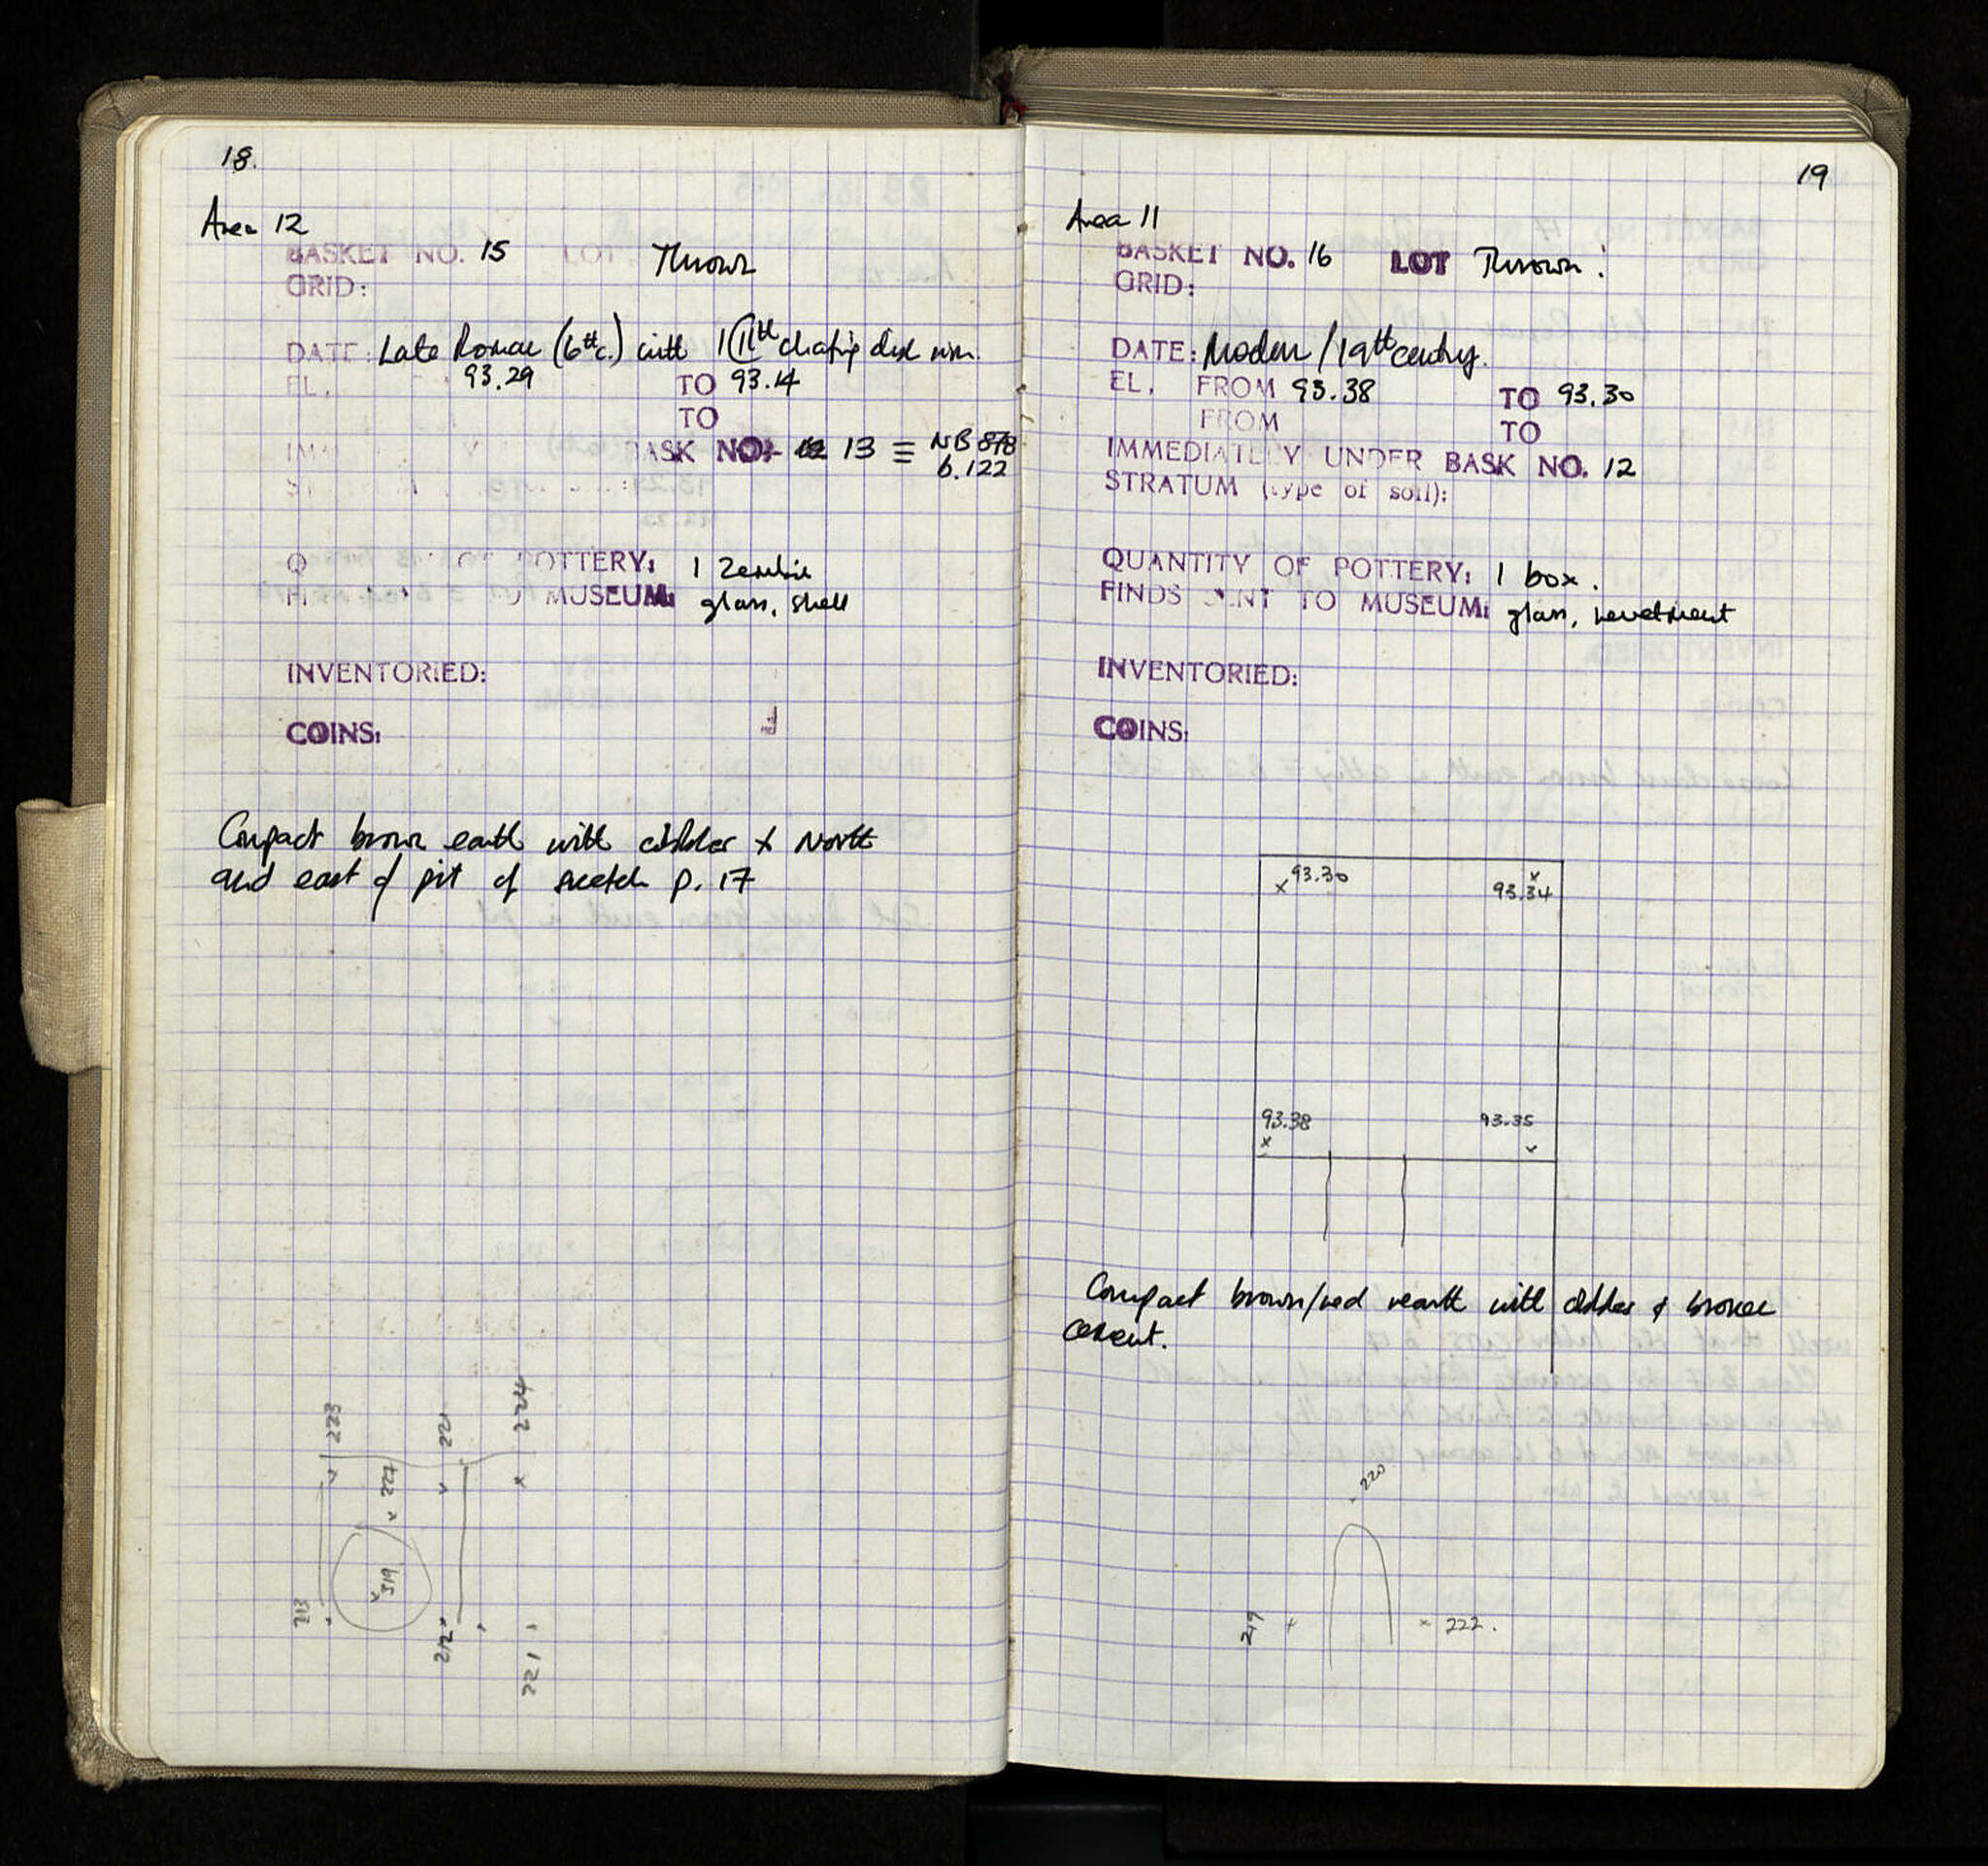 18.
Area 12
BASKET NO. 15 LOT Thrown
GRID:
DATE: Late Roman (6th c.) with 1 (11th chafing dish rim.
EL. 93.29 TO 93.14
TO
BASK NO. 13 ≡ NB 878
b. 122
POTTERY: 1 Zembie
MUSEUM: glass, shell
INVENTORIED:
COINS:
Compact brown earth with cobbles + North
and east of pit of sketch p. 17
223
221
224
227
319
213
212
221
19
Area 11
BASKET NO. 16 LOT Thrown!
GRID:
DATE: Modern / 19th century.
EL. FROM 93.38 TO 93.30
FROM TO
IMMEDIATELY UNDER BASK NO. 12
STRATUM (type of soil):
QUANTITY OF POTTERY: 1 box.
FINDS SENT TO MUSEUM: glass, revetment
INVENTORIED:
COINS:
93.30 93.34
93.38 93.35
Compact brown/red earth with cobbles & broken
cement.
220
219 222.